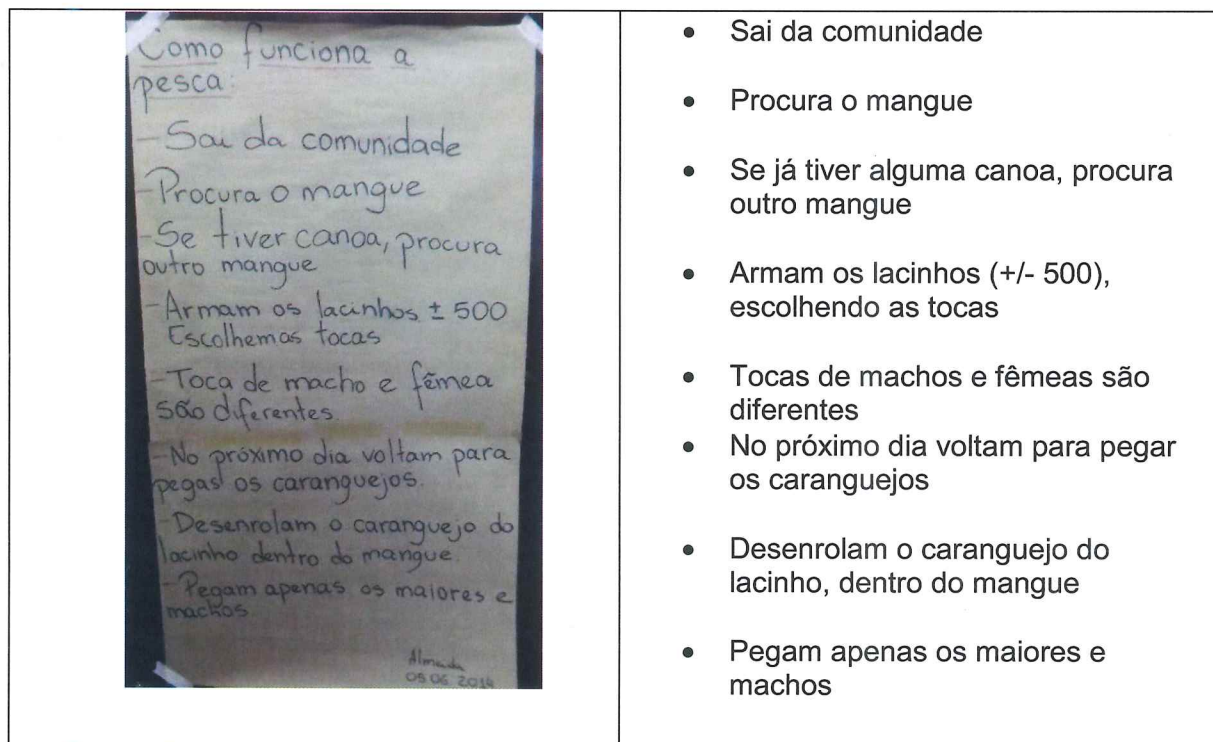 Como funciona a
pesca:
- Sai da comunidade
- Procura o mangue
- Se tiver canoa, procura
outro mangue
- Armam os lacinhos ± 500
Escolhemos tocas
- Toca de macho e fêmea
são diferentes.
- No próximo dia voltam para
pegas os caranguejos.
- Desenrolam o caranguejo do
lacinho dentro do mangue.
- Pegam apenas os maiores e
machos
Almada
05 06 2014
• Sai da comunidade
• Procura o mangue
• Se já tiver alguma canoa, procura
outro mangue
• Armam os lacinhos (+/- 500),
escolhendo as tocas
• Tocas de machos e fêmeas são
diferentes
• No próximo dia voltam para pegar
os caranguejos
• Desenrolam o caranguejo do
lacinho, dentro do mangue
• Pegam apenas os maiores e
machos